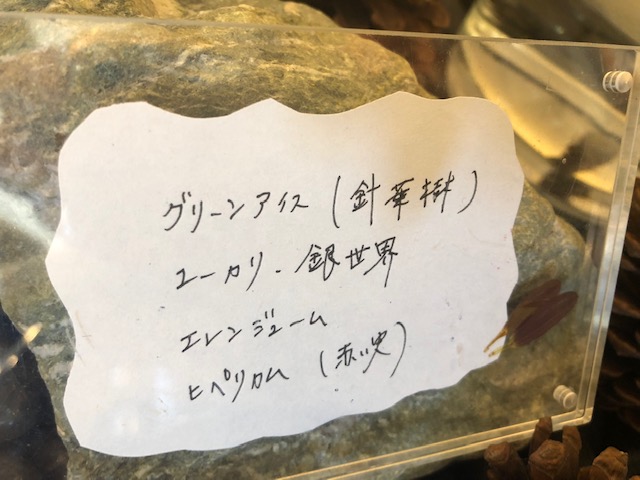 グリーンアイス (針葉樹)
ユーカリ . 銀世界
エレンジューム
ヒペリカム (赤い実)